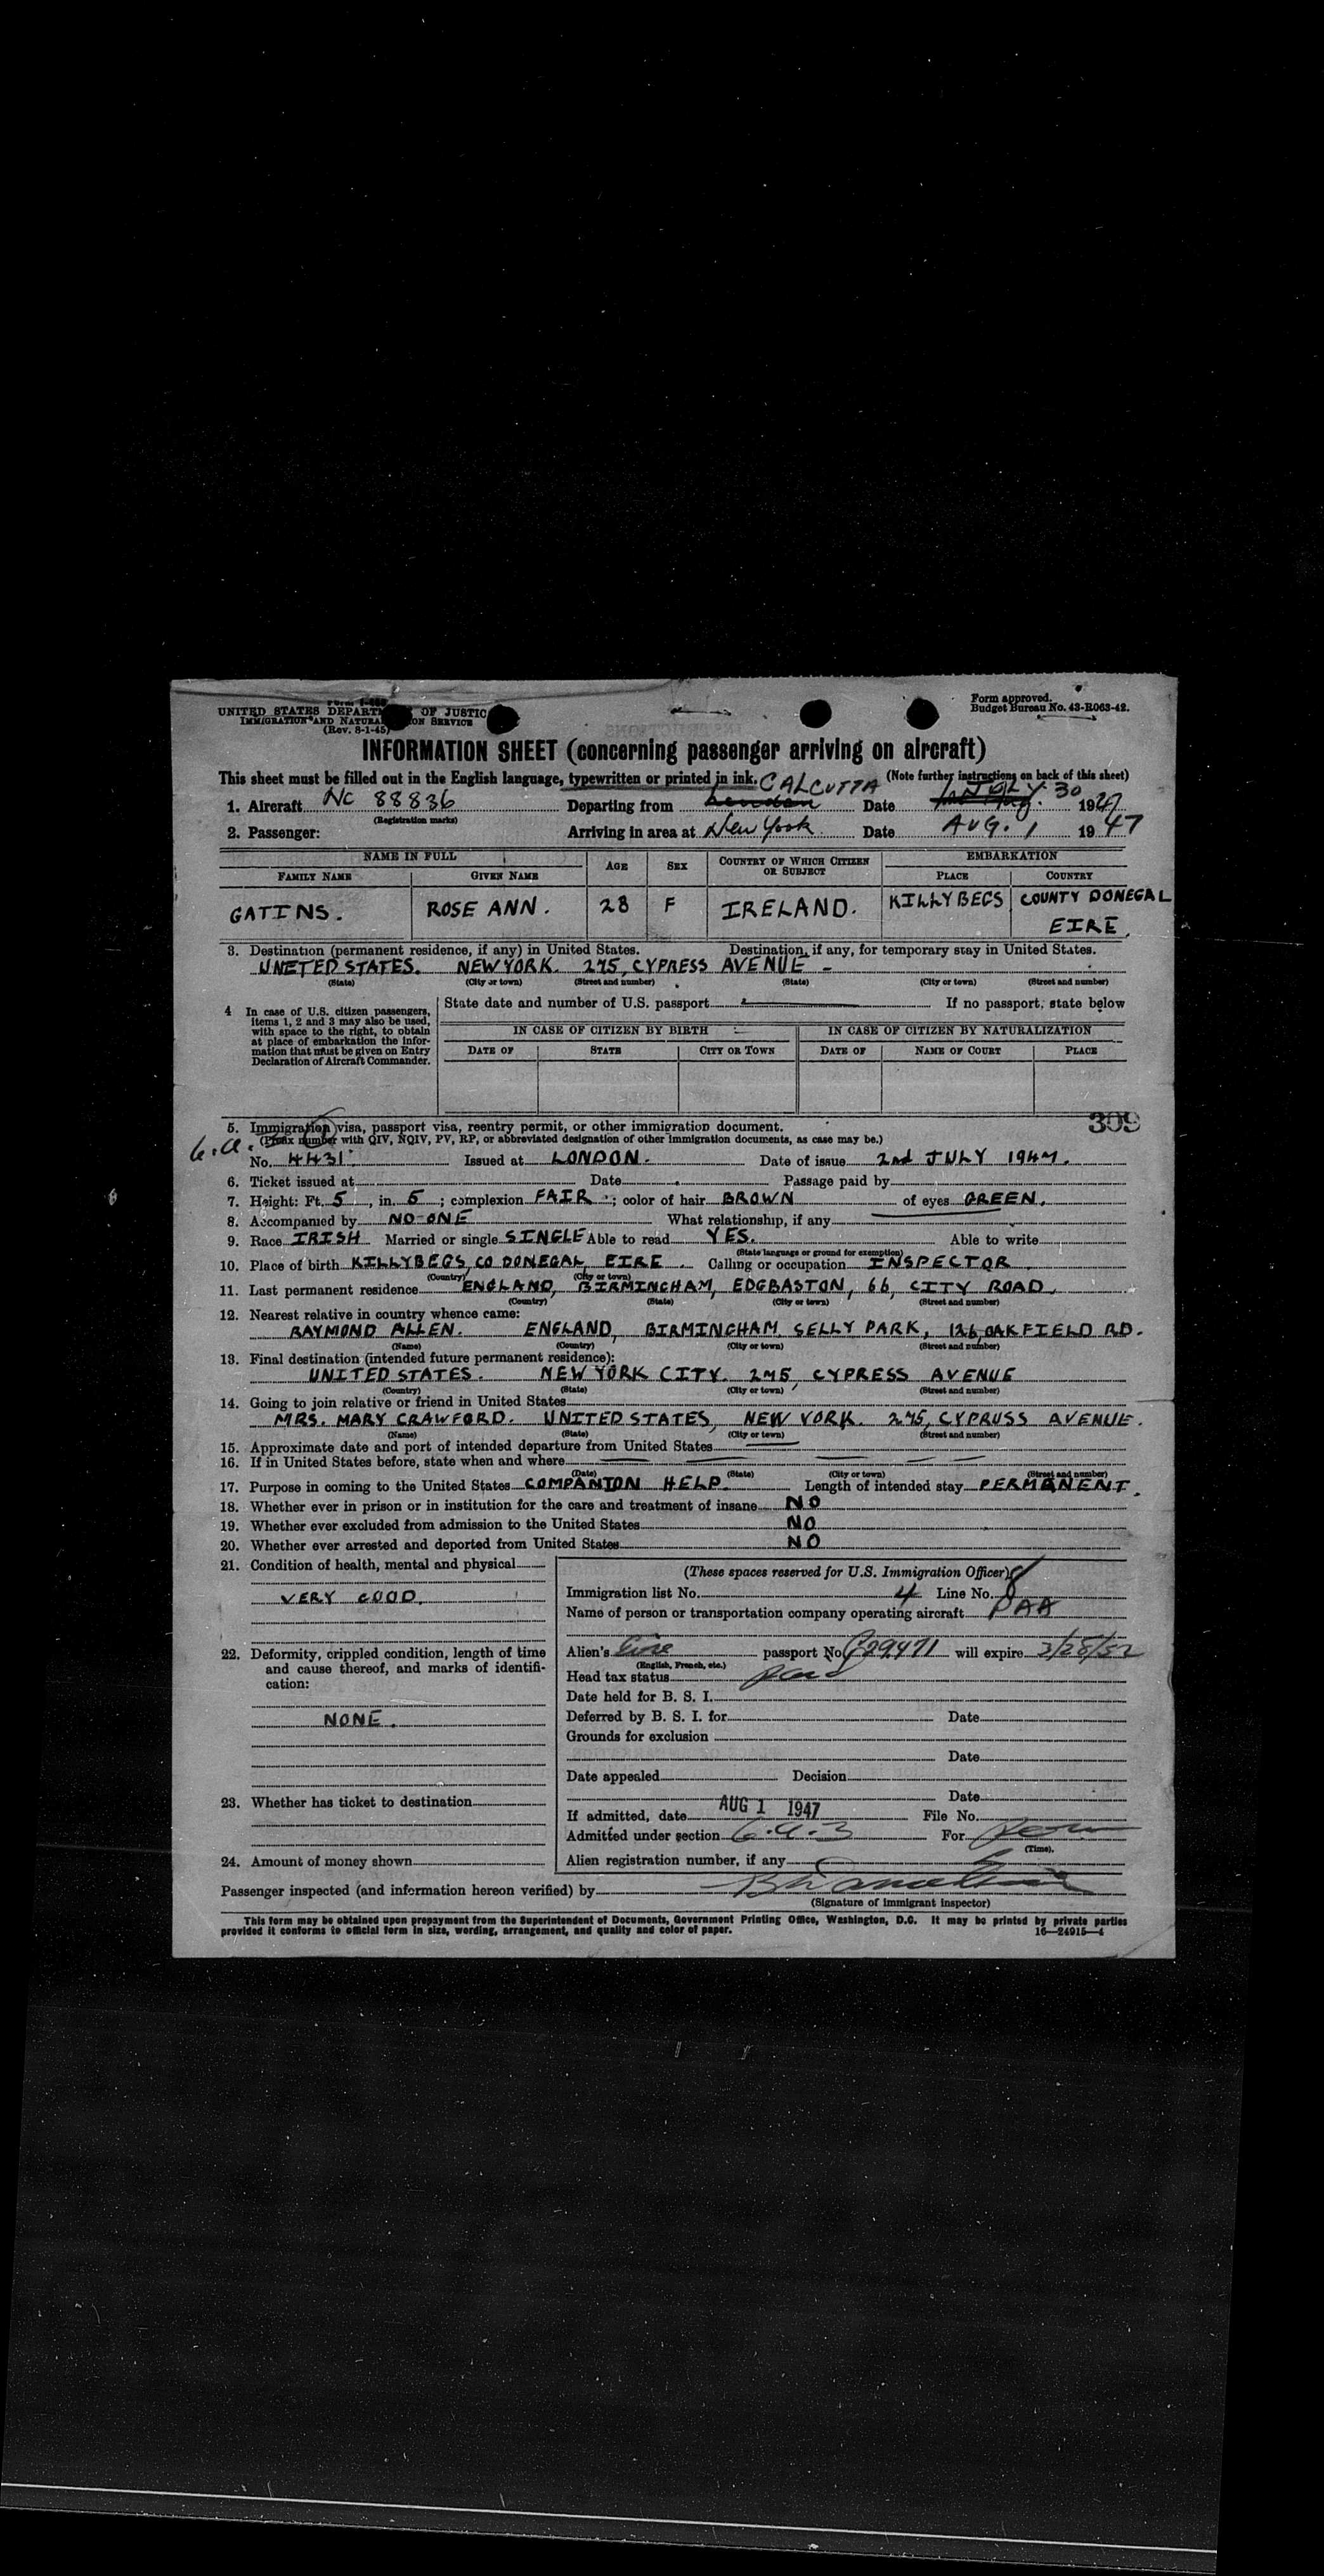 Form I-466
UNITED STATES DEPARTMENT OF JUSTICE
IMMIGRATION AND NATURALIZATION SERVICE
(Rev. 8-1-45)
Form approved.
Budget Bureau No. 43-R063-42.
INFORMATION SHEET (concerning passenger arriving on aircraft)
This sheet must be filled out in the English language, typewritten or printed in ink. (Note further instructions on back of this sheet)
CALCUTTA JULY 30
1. Aircraft NC 88836 Departing from London Date Aug. 1947
(Registration marks)
2. Passenger: Arriving in area at New York Date AUG. 1 1947
NAME IN FULL AGE SEX COUNTRY OF WHICH CITIZEN OR SUBJECT EMBARKATION
FAMILY NAME GIVEN NAME PLACE COUNTRY
GATINS. ROSE ANN. 28 F IRELAND. KILLYBEGS COUNTY DONEGAL
EIRE.
3. Destination (permanent residence, if any) in United States. Destination, if any, for temporary stay in United States.
UNETED STATES. NEW YORK. 275, CYPRESS AVENUE -
(State) (City or town) (Street and number) (State) (City or town) (Street and number)
4 In case of U.S. citizen passengers, items 1, 2 and 3 may also be used, with space to the right, to obtain at place of embarkation the information that must be given on Entry Declaration of Aircraft Commander.
State date and number of U.S. passport If no passport, state below
IN CASE OF CITIZEN BY BIRTH IN CASE OF CITIZEN BY NATURALIZATION
DATE OF STATE CITY OR TOWN DATE OF NAME OF COURT PLACE
309
5. Immigration visa, passport visa, reentry permit, or other immigration document.
(Prefix number with QIV, NQIV, PV, RP, or abbreviated designation of other immigration documents, as case may be.)
No. 4431. Issued at LONDON. Date of issue 2nd JULY 1947.
6. Ticket issued at Date Passage paid by
7. Height: Ft. 5, in. 5; complexion FAIR; color of hair BROWN of eyes GREEN.
8. Accompanied by NO-ONE What relationship, if any
9. Race IRISH Married or single SINGLE Able to read YES. Able to write
(State language or ground for exemption)
10. Place of birth KILLYBEGS, CO DONEGAL, EIRE. Calling or occupation INSPECTOR.
(Country) (City or town)
11. Last permanent residence ENGLAND, BIRMINGHAM, EDGBASTON, 66, CITY ROAD.
(Country) (State) (City or town) (Street and number)
12. Nearest relative in country whence came:
RAYMOND ALLEN. ENGLAND, BIRMINGHAM, SELLY PARK, 126, OAKFIELD RD.
(Name) (Country) (City or town) (Street and number)
13. Final destination (intended future permanent residence):
UNITED STATES. NEW YORK CITY. 275, CYPRESS AVENUE
(Country) (State) (City or town) (Street and number)
14. Going to join relative or friend in United States
MRS. MARY CRAWFORD. UNITED STATES, NEW YORK. 275, CYPRUSS AVENUE.
(Name) (State) (City or town) (Street and number)
15. Approximate date and port of intended departure from United States
16. If in United States before, state when and where
(Date) (State) (City or town) (Street and number)
17. Purpose in coming to the United States COMPANION HELP. Length of intended stay PERMANENT.
18. Whether ever in prison or in institution for the care and treatment of insane NO
19. Whether ever excluded from admission to the United States NO
20. Whether ever arrested and deported from United States NO
21. Condition of health, mental and physical
VERY GOOD.
22. Deformity, crippled condition, length of time and cause thereof, and marks of identification:
NONE.
23. Whether has ticket to destination
24. Amount of money shown
(These spaces reserved for U.S. Immigration Officer)
Immigration list No. 4 Line No. 8
Name of person or transportation company operating aircraft PAA
Alien's Eire passport No. 29471 will expire 3/28/52
(English, French, etc.)
Head tax status
Date held for B. S. I.
Deferred by B. S. I. for Date
Grounds for exclusion
Date
Date appealed Decision
Date
If admitted, date AUG 1 1947 File No.
Admitted under section 6.a.3 For Perm
(Time).
Alien registration number, if any
Passenger inspected (and information hereon verified) by
(Signature of immigrant inspector)
This form may be obtained upon prepayment from the Superintendent of Documents, Government Printing Office, Washington, D.C. It may be printed by private parties
provided it conforms to official form in size, wording, arrangement, and quality and color of paper. 16—24915-4